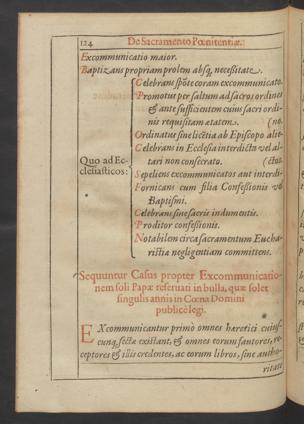 124 De Sacramento Pœnitentiæ.
Excommunicatio maior.
Baptizans propriam prolem absq; necessitate.
Celebrans spõte coram excommunicato.
Promotus per saltum ad sacros ordines
& ante sufficientem cuius sacri ordi-
nis requisitam ætatem. (no.
Ordinatus sine licẽtia ab Episcopo alie-
Celebrans in Ecclesia interdicta vel al-
tari non consecrato. (ctos.
Quo ad Ec-
clesiasticos:
Sepeliens excommunicatos aut interdi-
Fornicans cum filia Confessionis vel
Baptismi.
Celebrans sine sacris indumentis.
Proditor confessionis.
Notabilem circa sacramentum Eucha-
ristiæ negligentiam committens.
Sequuntur Casus propter Excommunicatio-
nem soli Papæ reseruati in bulla, quæ solet
singulis annis in Cœna Domini
publicè legi.
EXcommunicantur primò omnes hæretici cuius-
cunq; sectæ existant, & omnes eorum fautores, re-
ceptores & illis credentes, ac eorum libros, sine autho-
ritate